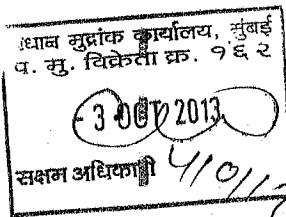 प्रधान मुद्रांक कार्यालय, मुंबई
प. मु. विक्रेता क्र. १६२
- 3 OCT 2013
सक्षम अधिकारी